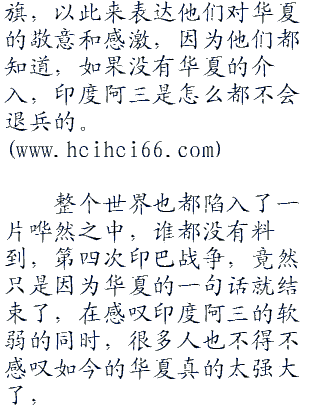 旗，以此来表达他们对华夏
的敬意和感激，因为他们都
知道，如果没有华夏的介
入，印度阿三是怎么都不会
退兵的。
(www.hcihci66.com)
整个世界也都陷入了一
片哗然之中，谁都没有料
到，第四次印巴战争，竟然
只是因为华夏的一句话就结
束了，在感叹印度阿三的软
弱的同时，很多人也不得不
感叹如今的华夏真的太强大
了，